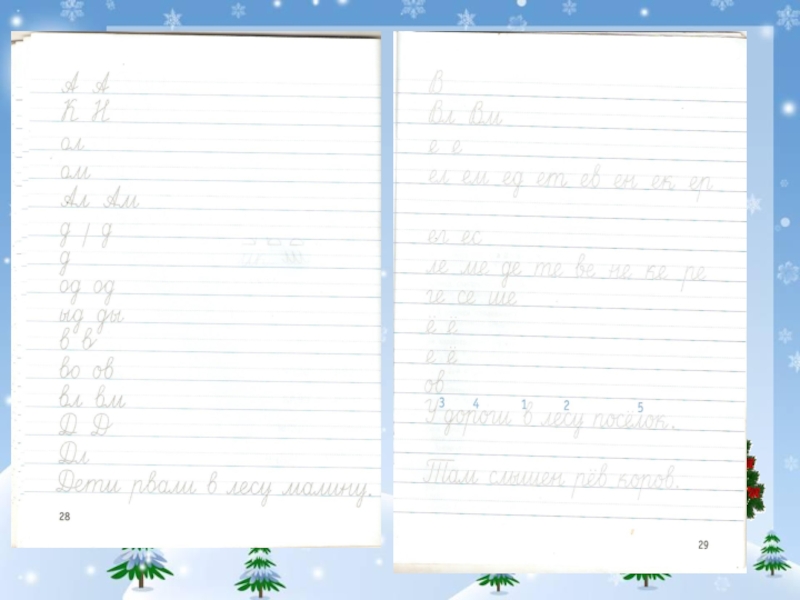 А А
К Н
ол
ом
Ал Ам
д / д
д
од од
ыд ды
в в
во ов
вл вм
Д Д
Дл
Дети рвали в лесу малину.
28
В
Вл Вм
е е
ел ем ед ет ев ен ек ер
ег ес
ле ме де те ве не ке ре
ге се ше
ё ё
е ё
ов
3 4 1 2 5
У дороги в лесу посёлок.
Там слышен рёв коров.
29